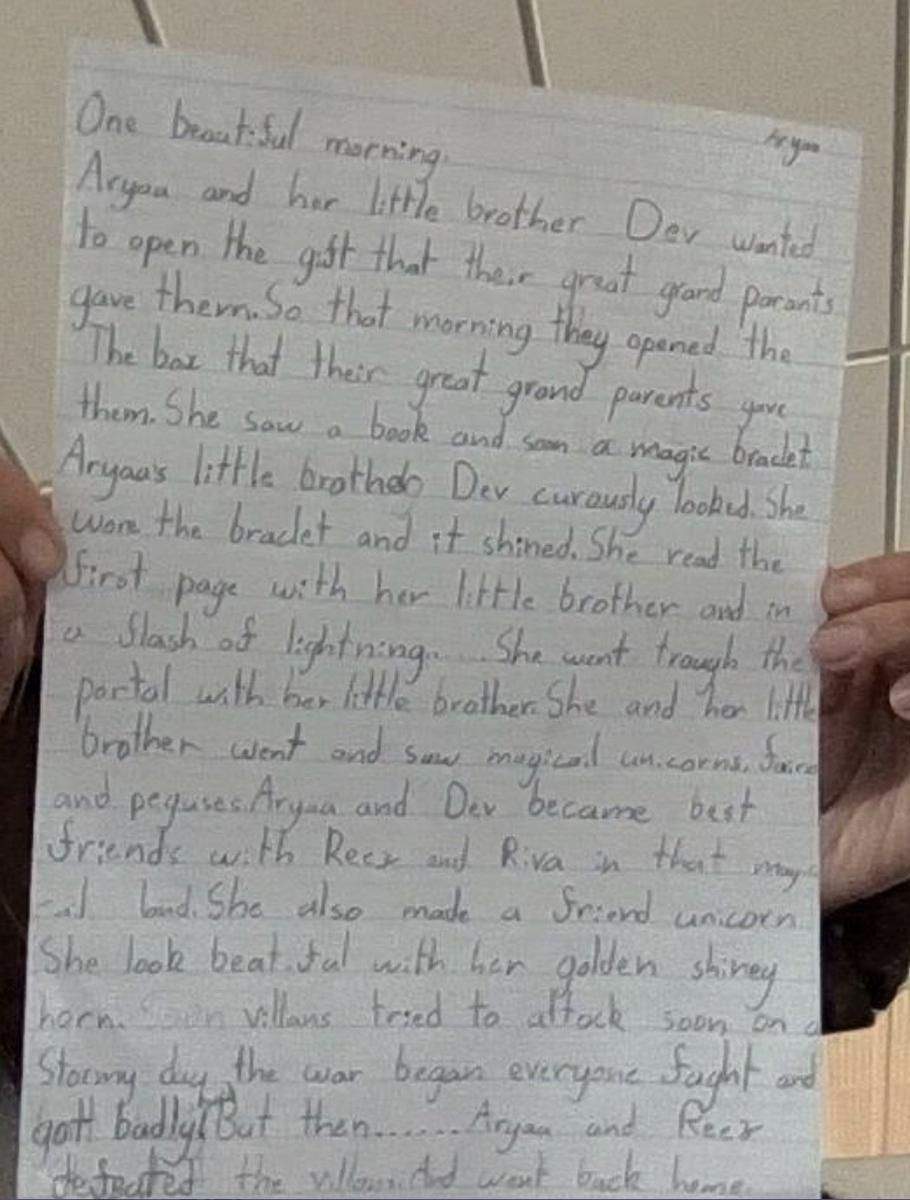 Aryaa
One beautiful morning.
Aryaa and her little brother Dev wanted
to open the gift that their great grand parants
gave them. So that morning they opened the
The box that their great grand parents gave
them. She saw a book and soon a magic braclet
Aryaa's little brother Dev curously looked. She
wore the braclet and it shined. She read the
first page with her little brother and in
a flash of lightning..... She went trough the
portal with her little brother. She and her little
brother went and saw magical unicorns,
and peguses. Aryaa and Dev became best
friends with Reer and Riva in that magic
-al land. She also made a friend unicorn
She look beatiful with her golden shiney
horn. villans tried to attack soon on a
Stormy day the war began everyone faght and
gott badly But then....... Aryaa and Reer
defeated the villans. And went back home.